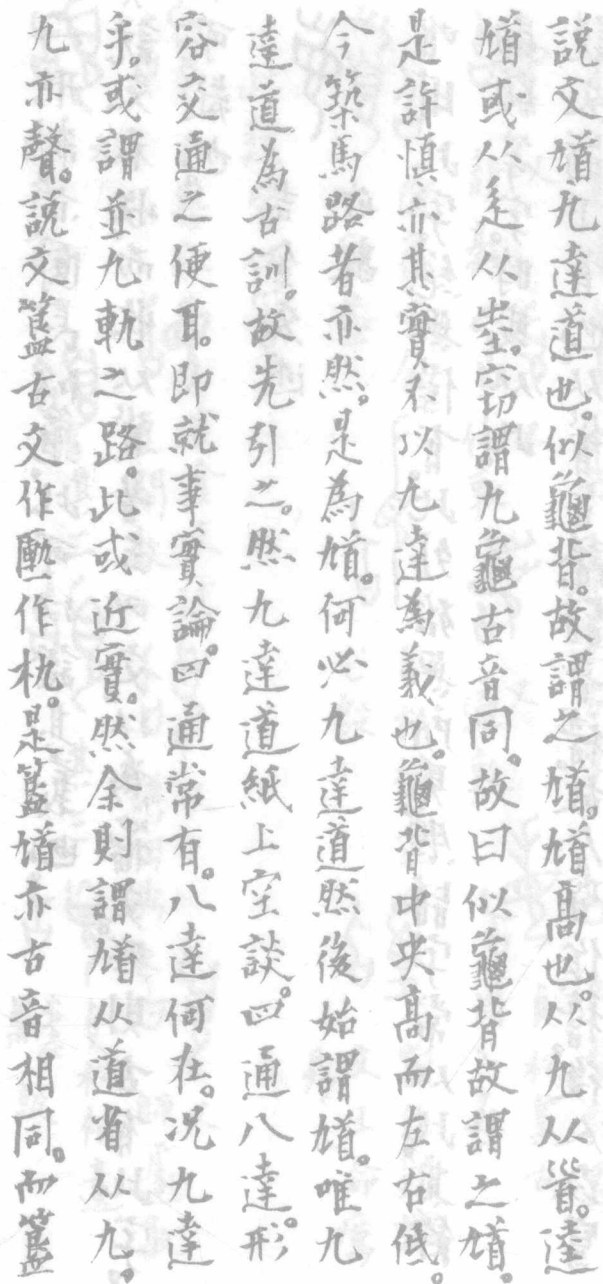 說文馗九達道也。似龜背。故謂之馗。馗高也。从九从𩠐。逵
馗或从辵。从坴。窃謂九龜古音同。故曰似龜背故謂之馗。
是許慎亦其實不以九達為義也。龜背中央高而左右低。
今築馬路者亦然。是為馗。何必九達道然後始謂馗。唯九
達道為古訓。故先引之。然九達道紙上空談。四通八達。形
容交通之便耳。即就事實論。四通常有。八達何在。况九達
乎。或謂並九軌之路。此或近實。然余則謂馗从道省从九。
九亦聲。說文簋古文作匭作朹。是簋馗亦古音相同。而簋